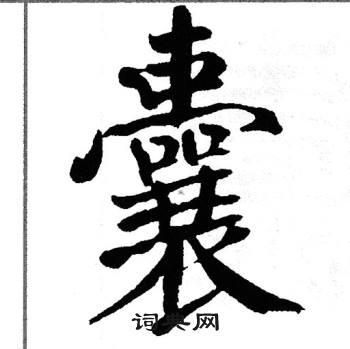 囊
词典网